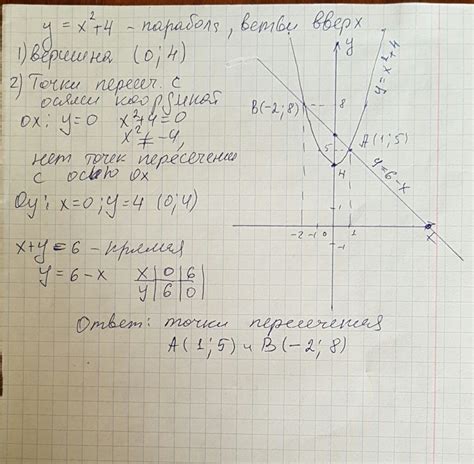 y = x²+4 - парабола, ветви вверх
1) Вершина (0; 4)
2) Точки пересеч. с
осями координат
OX: y=0 x²+4=0
x²≠-4,
нет точек пересечения
с осью OX
Oy: x=0; y=4 (0;4)
x+y=6 - прямая
y=6-x
x | 0 | 6
y | 6 | 0
y
y=x²+4
B(-2; 8)
8
A(1; 5)
5
4
y=6-x
-2 -1 0 1
x
-1
Ответ: точки пересечения
A(1; 5) и B(-2; 8)